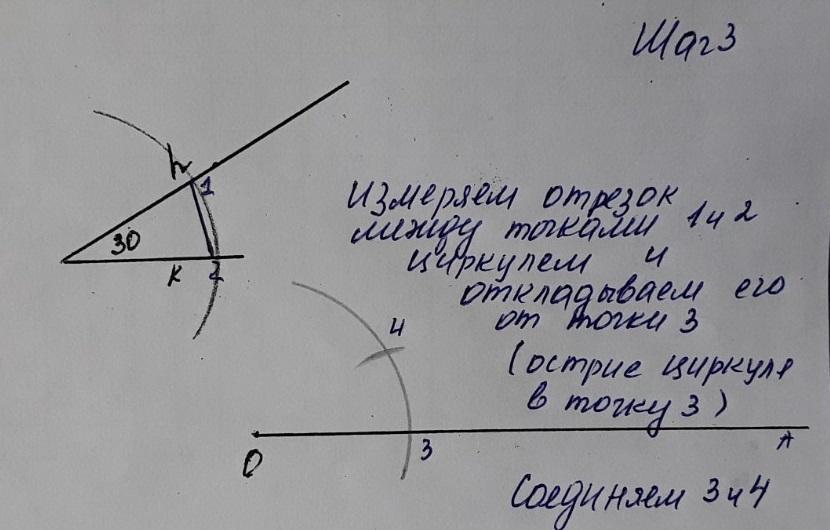 Шаг 3
h
1
30
к
2
Измеряем отрезок
между точками 1 и 2
циркулем и
откладываем его
от точки 3
(острие циркуля
в точку 3)
4
О
3
А
Соединяем 3 и 4